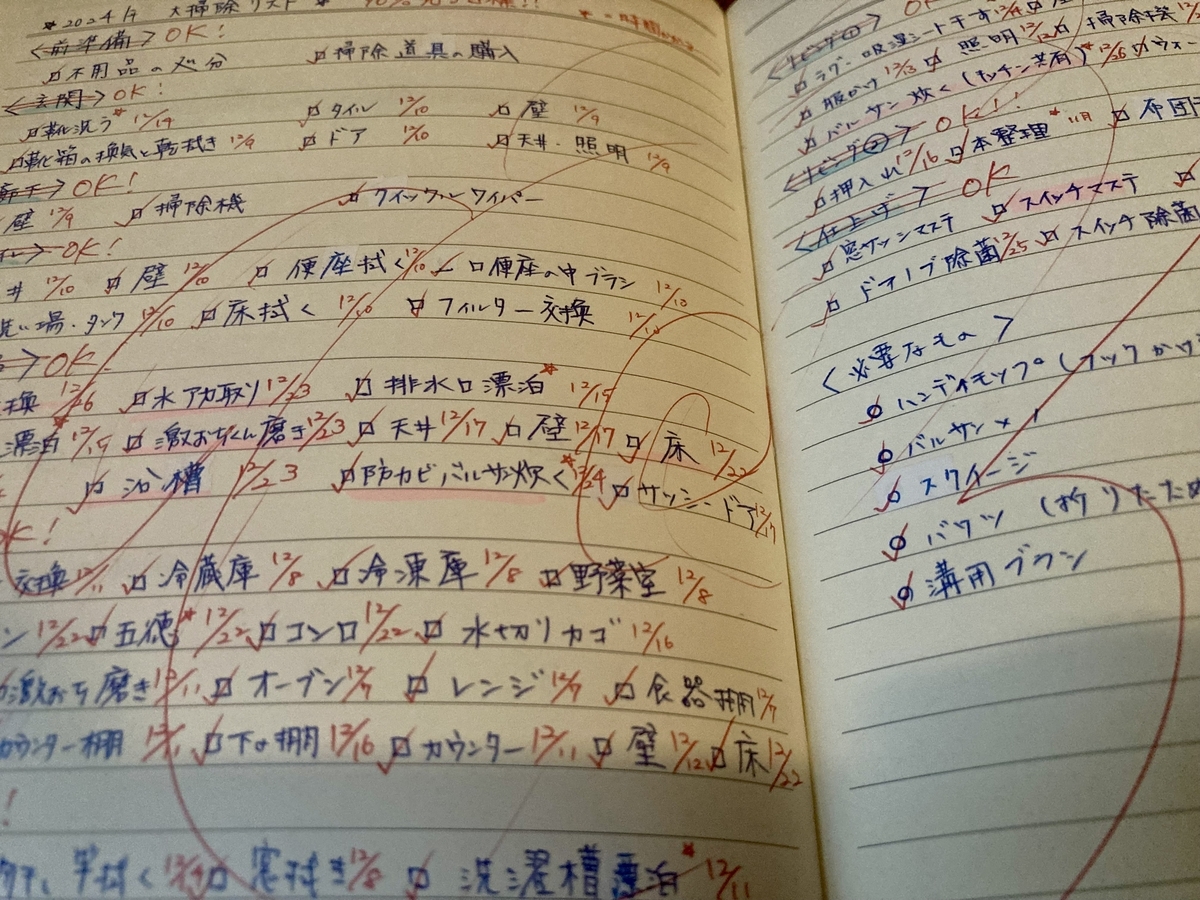 *2024年 大掃除リスト*
<前準備> OK!
不用品の処分 掃除道具の購入
<玄関> OK!
靴洗う* 12/19 タイル 12/10 壁 12/9
靴箱の換気と乾拭き 12/9 ドア 12/10 天井・照明 12/9
OK!
壁 12/9 掃除機 クイックルワイパー
OK!
井 12/10 壁 12/10 便座拭く 12/10 便座の中ブラシ 12/10
洗い場・タンク 12/10 床拭く 12/10 フィルター交換 12/10
> OK
換 12/26 水アカ取り 12/23 排水口漂泊* 12/15
漂泊* 12/15 激おちくん磨き 12/23 天井 12/17 壁 12/17 床 12/22
浴槽 12/23 防カビバルサン炊く* 12/24 サッシ・ドア 12/17
OK!
交換 12/11 冷蔵庫 12/8 冷凍庫 12/8 野菜室 12/8
ン 12/22 五徳* 12/22 コンロ 12/22 水切りカゴ 12/16
激おち磨き 12/11 オーブン 12/7 レンジ 12/7 食器棚 12/7
カウンター棚 12/11 下の棚 12/16 カウンター 12/11 壁 12/12 床 12/22
!
拭く 窓拭き 12/8 洗濯槽漂泊* 12/11
<リビング①> OK
ラグ・吸湿シート干す 照明 12/12 掃除機
服かけ 12/13
バルサン炊く (キッチン共有)* 12/26
<リビング②> OK!!
押入れ 12/16 本整理* 11月 布団
<仕上げ> OK
窓サッシマステ スイッチマステ
ドアノブ除菌 12/25 スイッチ除菌
<必要なもの>
ハンディモップ (フックかけ
バルサン×1
スクイージ
バケツ (折りたため
溝用ブラシ